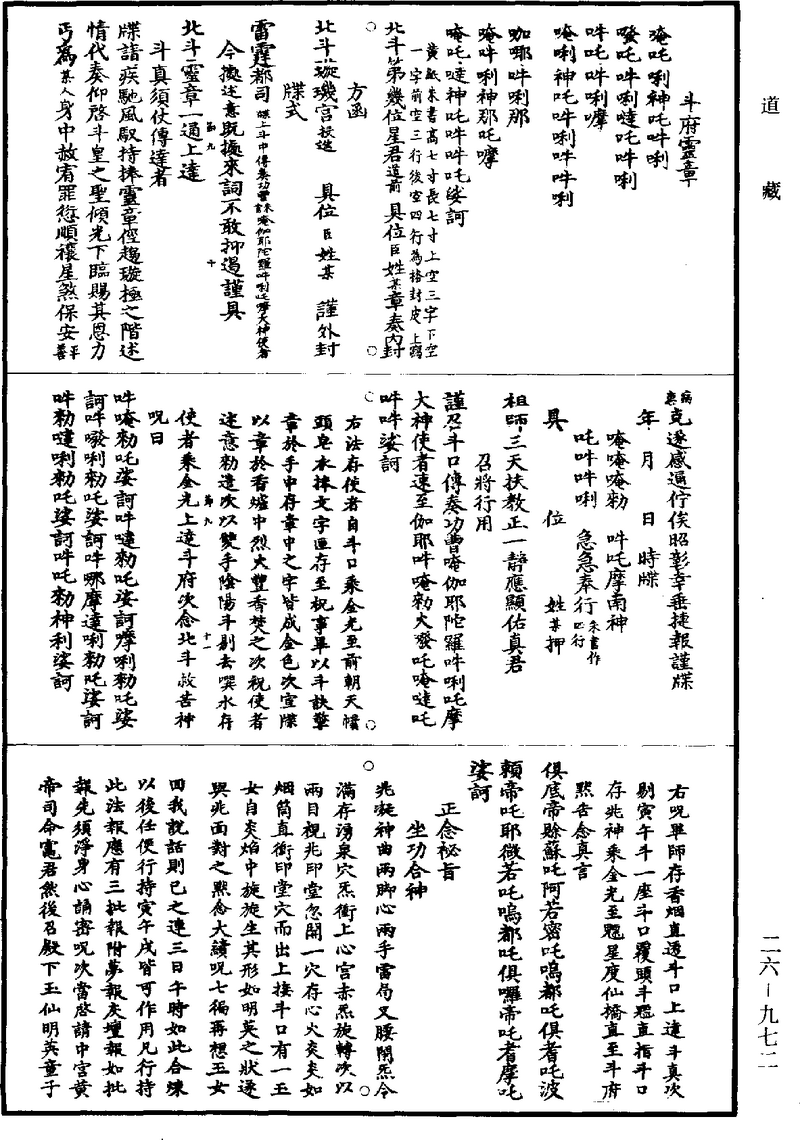 道藏
斗府靈章
唵吒唎神吒吽唎
發吒吽唎噠吒吽唎
吽吒吽唎摩
唵唎神吒吽唎吽吽唎
咖哪吽唎那
唵吽唎神那吒摩
唵吒噠神吒吽吽吒娑訶
黃紙朱書高七寸長七寸上空三字下空
一字前空三行後空四行為格封皮上寫
北斗第幾位星君道前 具位臣姓某章奏內封
方函
北斗璇璣宮投進 具位臣姓某 謹外封
牒式
雷霆都司 牒上斗中傳奏功曹誅唵伽耶陀羅吽唎吒摩大神使者
今據述意既據來詞不敢抑遏謹具
北斗靈章一通上達
斗真須仗傳達者
牒請疾馳風馭持捧靈章徑趨璇極之階述
情代奏仰啓斗皇之聖傾光下臨賜其恩力
丐爲某人身中赦宥罪愆順禳星煞保安平善
病患克遂感通佇俟昭彰幸垂捷報謹牒
年 月 日 時牒
唵唵唵勑 吽吒摩南神
吒吽吽唎 急急奉行朱書作四行
具 位 姓某押
祖師三天扶教正一靜應顯佑真君
召將行用
謹召斗口傳奏功曹唵伽耶陀羅吽唎吒摩
大神使者速至伽耶吽唵勑大發吒唵噠吒
吽吽娑訶
右法存使者自斗口乘金光至前朝天幘
頭皂衣捧文字匣存至祝事畢以斗訣擎
章於手中存章中之字皆成金色次宣牒
以章於香爐中烈火豐香焚之次祝使者
述意勑遣次以雙手陰陽斗剔去噀水存
使者乘金光上達斗府次念北斗赦苦神
呪曰
吽唵勑吒娑訶吽噠勑吒娑訶摩唎勑吒娑
訶吽發唎勑吒娑訶吽哪摩達唎勑吒娑訶
吽勑噠唎勑吒娑訶吽吒勑神利娑訶
右呪畢師存香烟直透斗口上達斗真次
剔寅午斗一座斗口覆頭斗魁直指斗口
存兆神乘金光至魁星度仙橋直至斗府
黙告念真言
俱底帝賒蘇吒阿若密吒嗚都吒俱耆吒波
頼帝吒耶微若吒嗚都吒俱囉帝吒耆摩吒
娑訶
正念祕旨
坐功合神
兆凝神曲兩脚心兩手雷局叉腰閉炁令
滿存湧泉穴炁衝上心宮赤炁旋轉次以
兩目視兆印堂忽開一穴存心火炎炎如
烟筒直衝印堂穴而出上接斗口有一玉
女自炎焰中旋旋生其形如明英之狀遂
與兆面對之黙念大讀呪七徧再想玉女
回我說話則已之連三日午時如此合煉
以後任便行持寅午戌皆可作用凡行持
此法報應有三批報附夢報灰壇報如批
報先須淨身心誦密呪次當啓請中宮黃
帝司命竈君然後召殿下玉仙明英童子
第九 十
第九 十一
二六－九七二